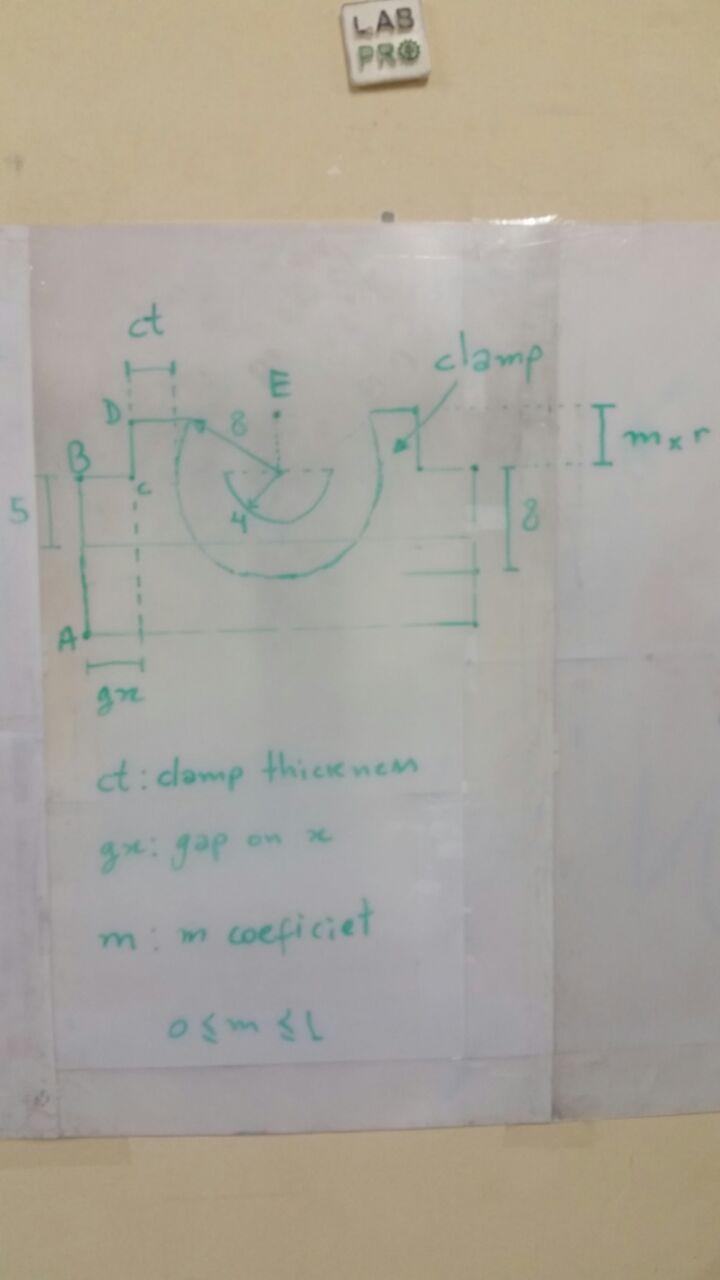 LAB
PRO
ct
clamp
E
D
8
m x r
B
c
5
4
8
A
gx
ct: clamp thicknem
gx: gap on x
m: m coeficiet
0 ≤ m ≤ 1